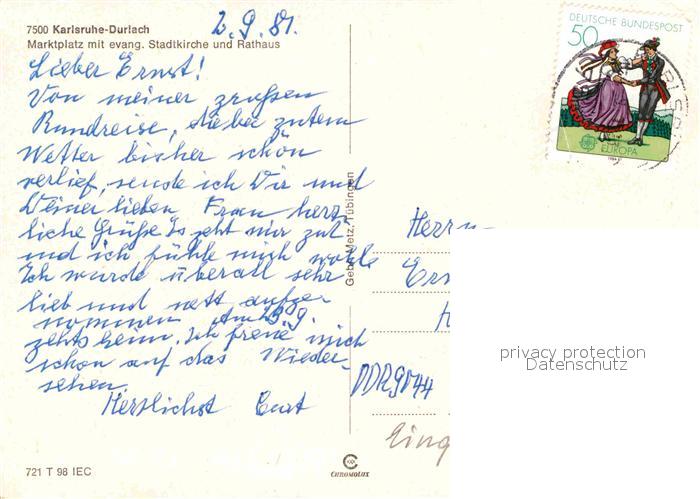 7500 Karlsruhe-Durlach
Marktplatz mit evang. Stadtkirche und Rathaus
2.9.81.
Lieber Ernst!
Von meiner großen
Rundreise, die bei gutem
Wetter bisher schön
verlief, sende ich Dir und
Deiner lieben Frau herz-
liche Grüße. Es geht mir gut
und ich fühle mich wohl
Ich wurde überall sehr
lieb und nett aufge-
nommen. Am 25.9.
gehts heim. Ich freue mich
schon auf das Wieder-
sehen.
Herzlichst Curt
Gebr. Metz, Tübingen
DEUTSCHE BUNDESPOST
50
EUROPA
Herrn
DDR 9044
privacy protection
Datenschutz
721 T 98 IEC
CHROMOLUX